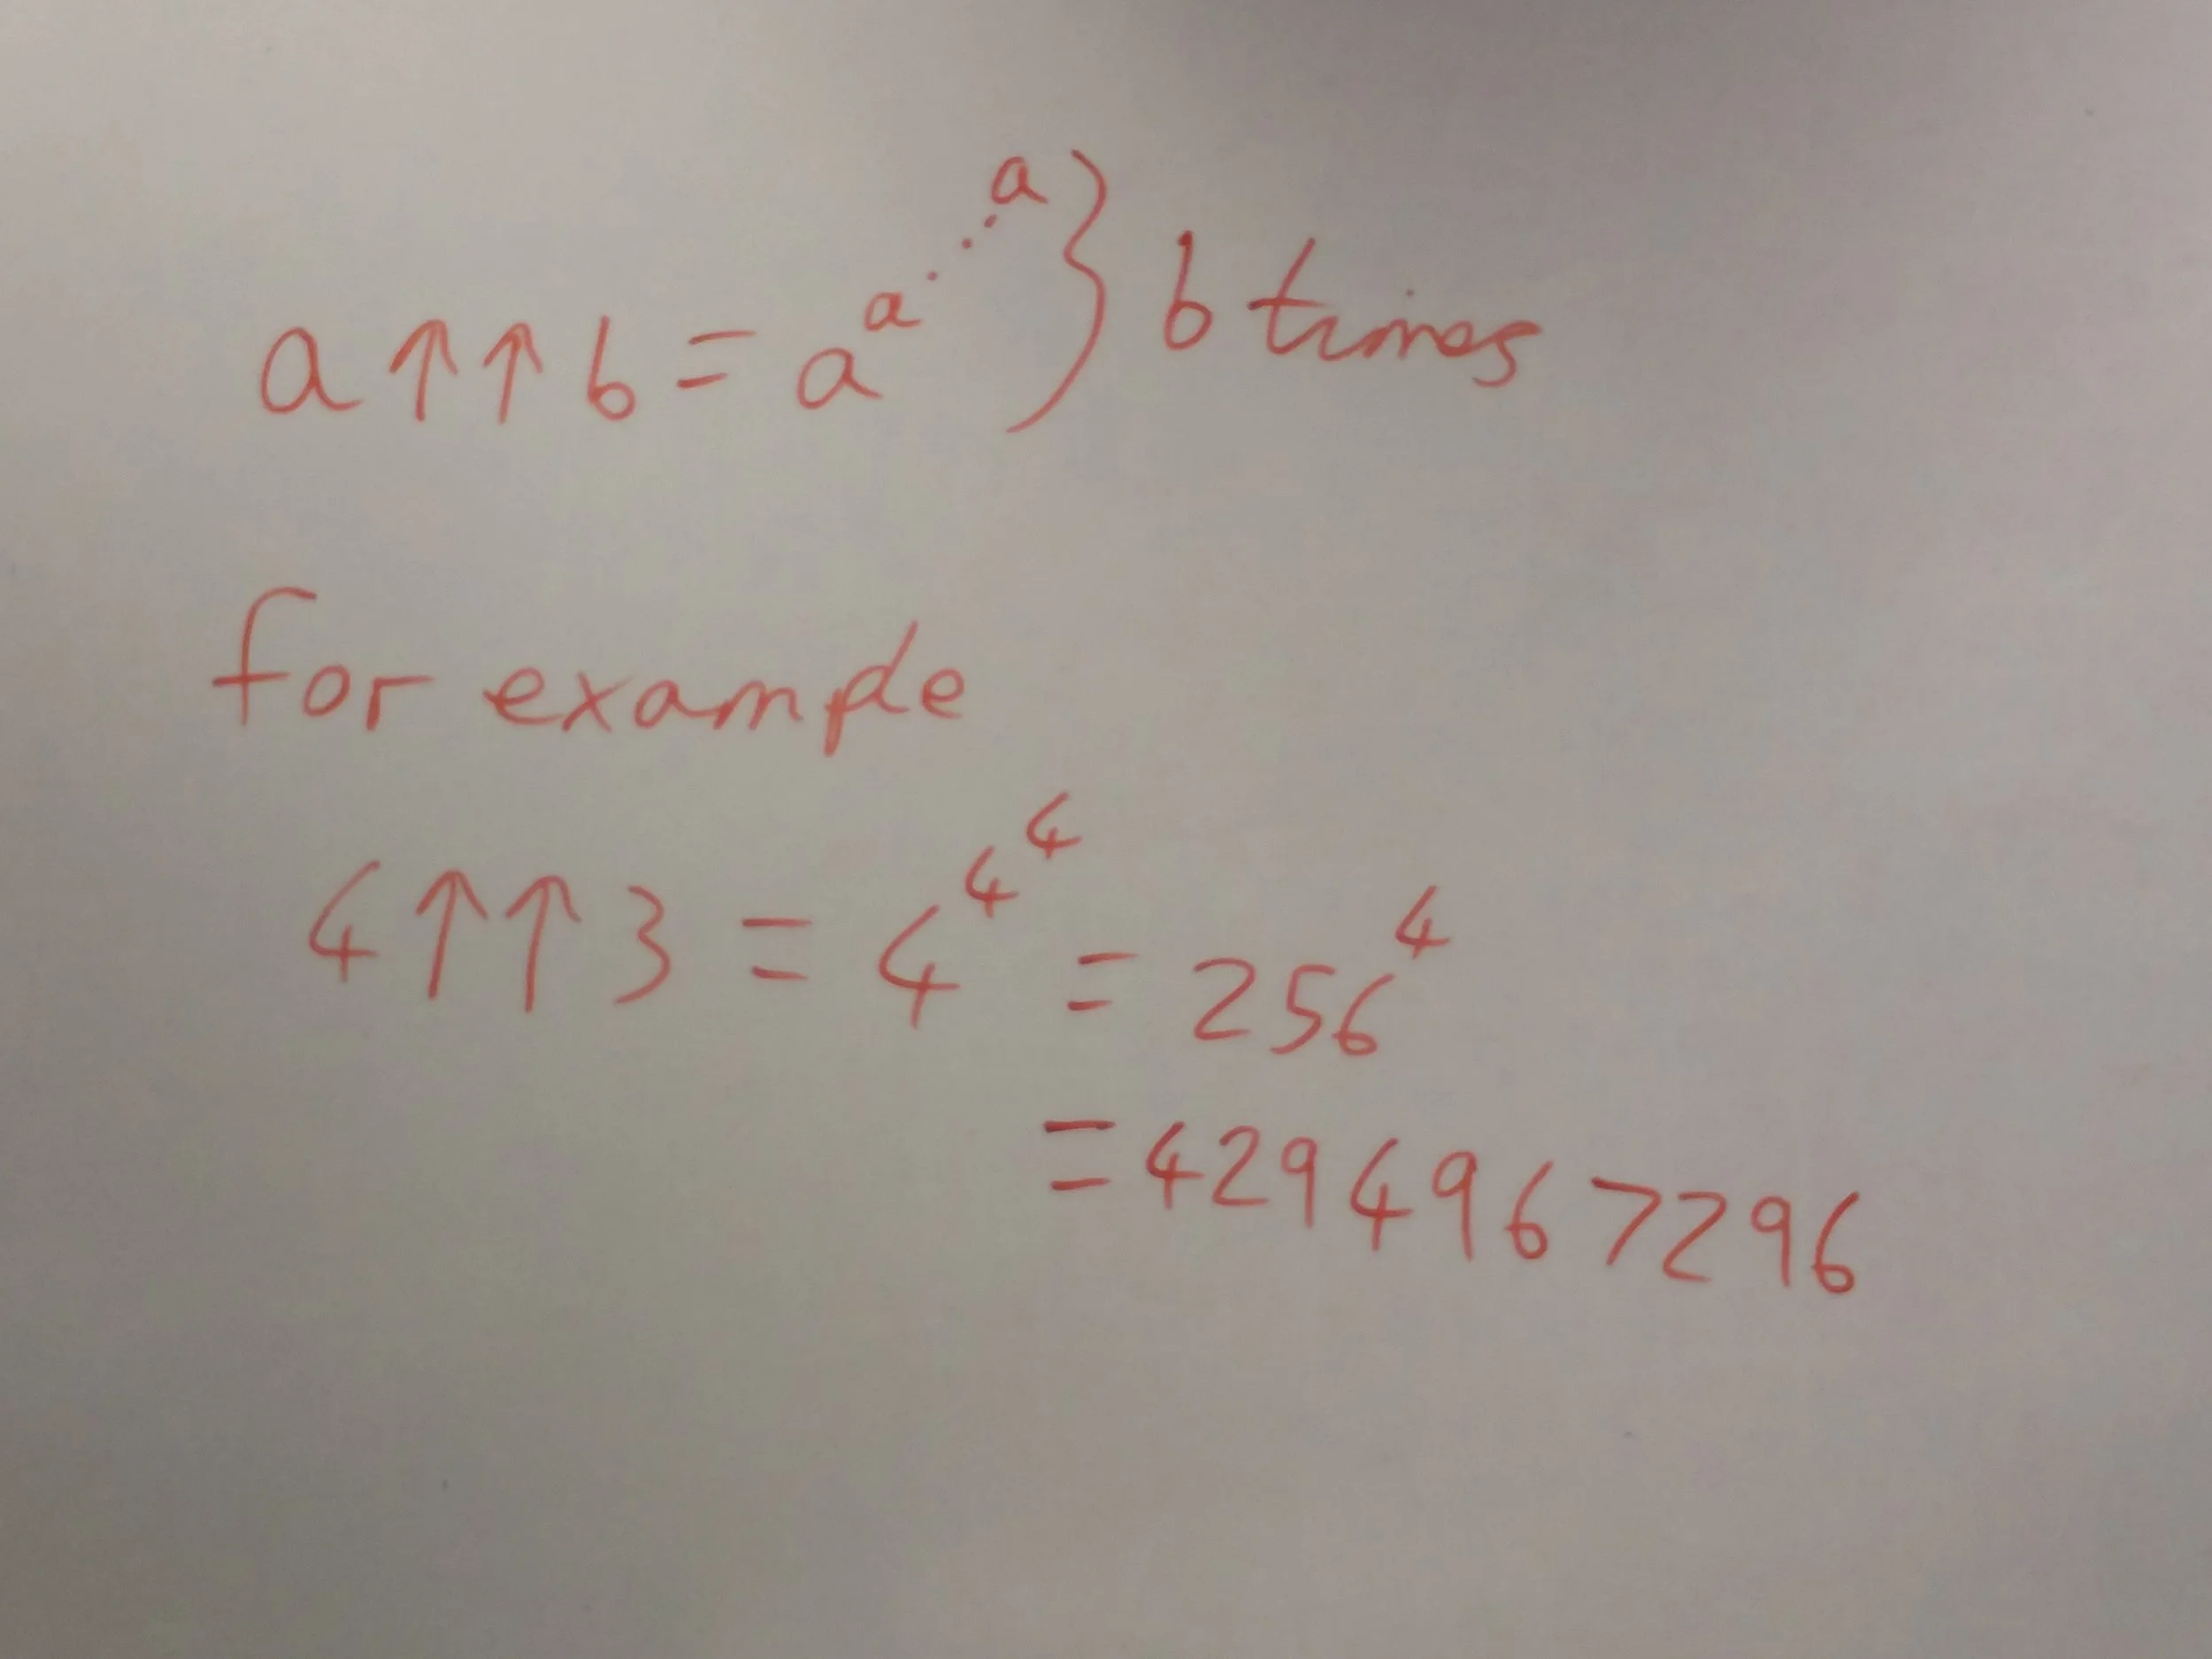 a↑↑b = a^a^⋰^a } b times
for example
4↑↑3 = 4^4^4 = 256^4
= 4294967296